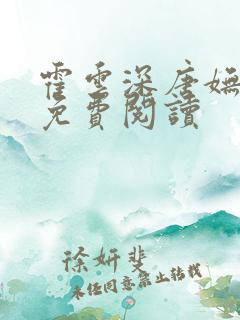 霍雲深唐嫵
免費閱讀
徐妍斐
未经同意禁止转载